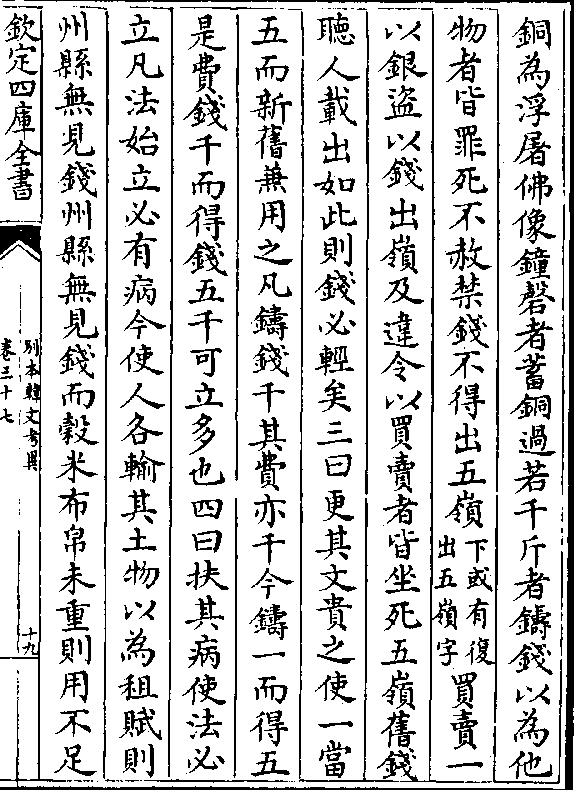 銅為浮屠佛像鐘磬者蓄銅過若干斤者鑄錢以為他
物者皆罪死不赦禁錢不得出五嶺下或有復出五嶺字買賣一
以銀盜以錢出嶺及違令以買賣者皆坐死五嶺舊錢
聴人載出如此則錢必輕矣三曰更其文貴之使一當
五而新舊兼用之凡鑄錢千其費亦千今鑄一而得五
是費錢千而得錢五千可立多也四曰扶其病使法必
立凡法始立必有病今使人各輸其土物以為租賦則
州縣無見錢州縣無見錢而穀米布帛未重則用不足
欽定四庫全書
别本韓文考異
卷三十七
十九